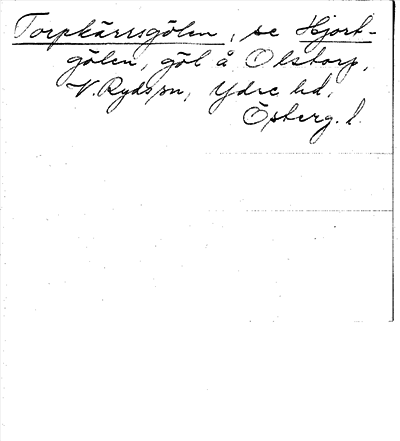 Torpkärrsgölen, se Hjort-
gölen, göl å Olstorp,
V. Ryds sn, Ydre hd,
Österg. l.